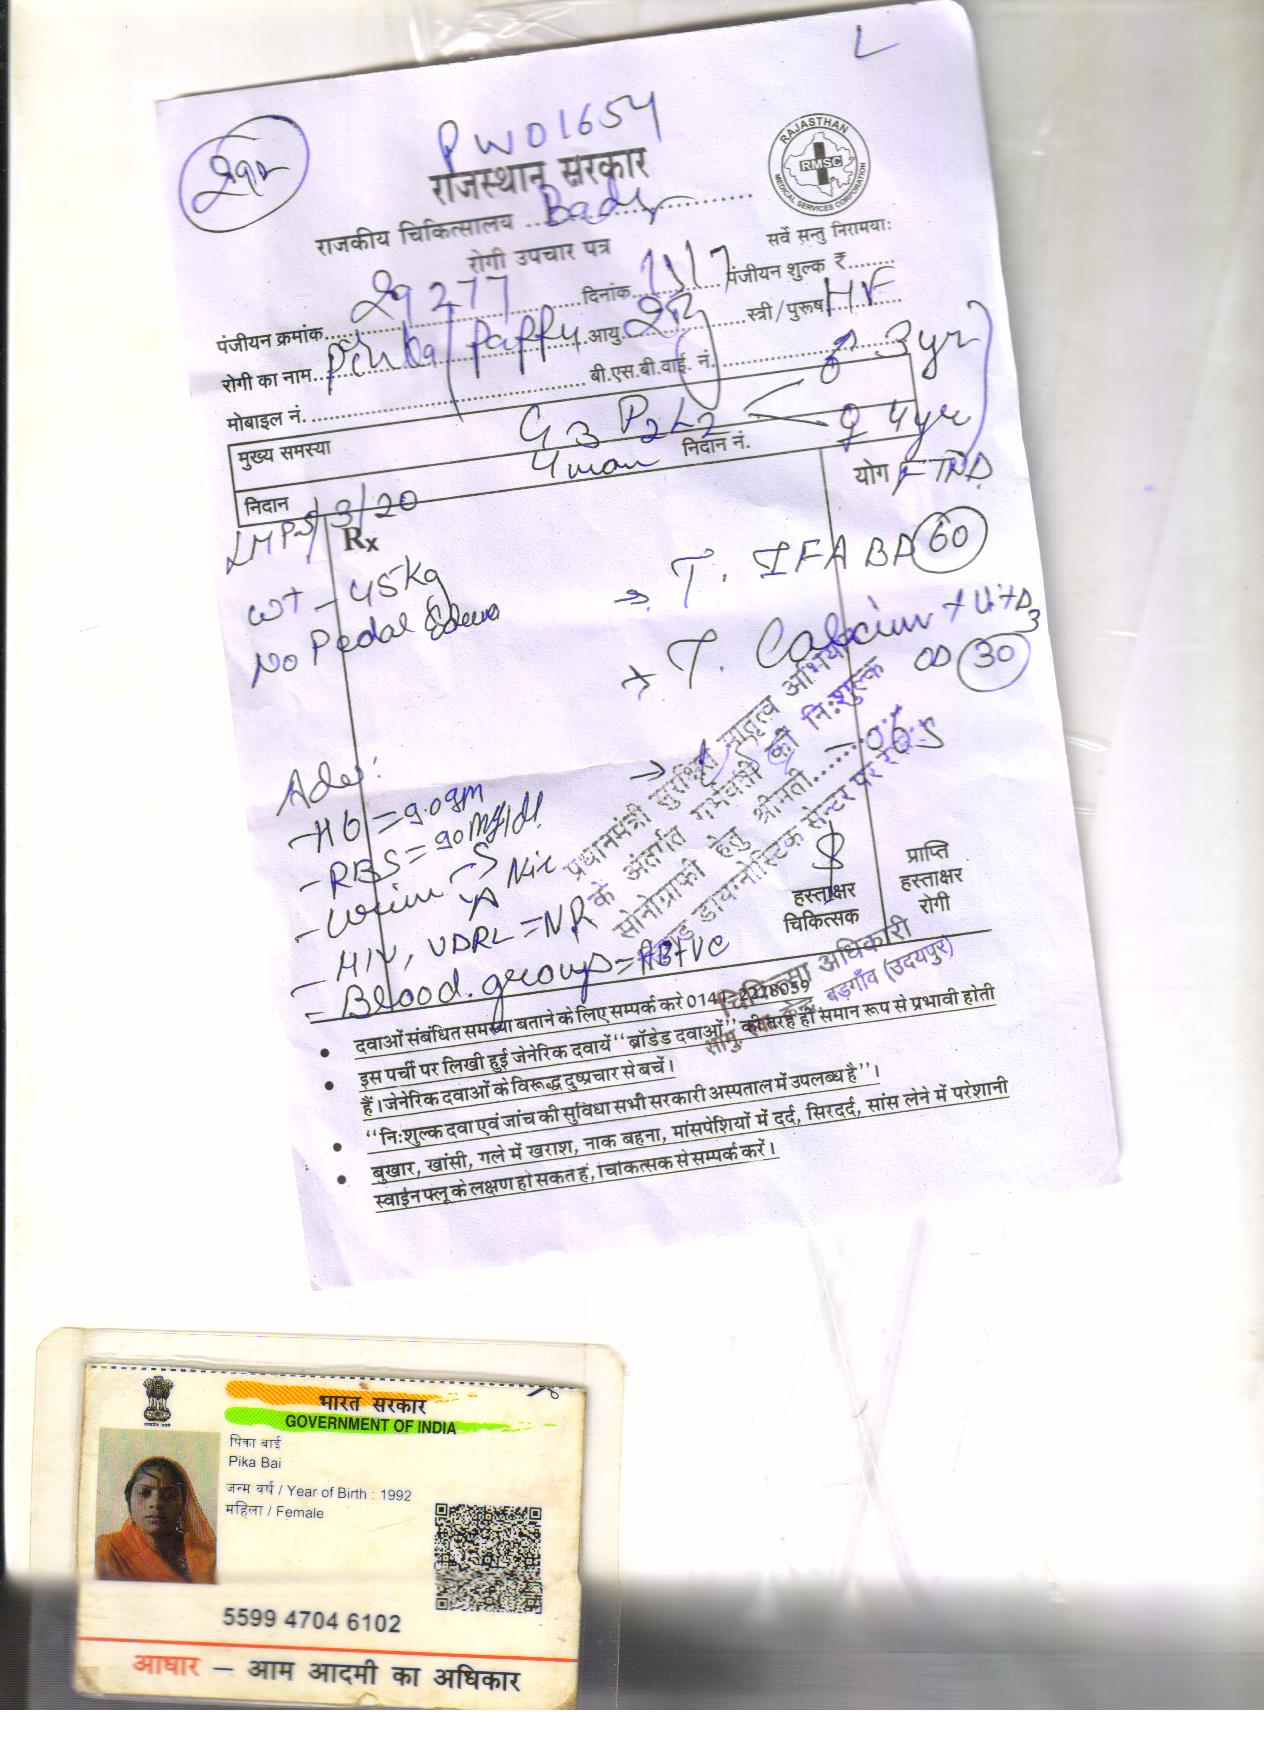 L
292
PW01654
राजस्थान सरकार
RAJASTHAN
RMSC
MEDICAL SERVICES CORPORATION
राजकीय चिकित्सालय
सर्वे सन्तु निरामयाः
रोगी उपचार पत्र
पंजीयन क्रमांक 29277 दिनांक पंजीयन शुल्क ₹
रोगी का नाम Pinka / Pappu आयु स्त्री / पुरूष HF
मोबाइल नं. बी.एस.बी.वाई. नं.
3yr
मुख्य समस्या G3 P2L2
4yr
निदान 4 mon निदान नं.
योग FTND
LMP-5/3/20
Rx
wt - 45kg
No Pedal Edema
→ T. IFA BD 60
→ T. Calcium + Vit D3
OD 30
Adv:
- Hb = 9.0gm
- RBS = 90 mg/dl
- Urine - S Nil
A
- HIV, VDRL = NR
- Blood group = AB+ve
प्रधानमंत्री सुरक्षित मातृत्व अभियान
के अंतर्गत गर्भवती की निःशुल्क
सोनोग्राफी हेतु श्रीमती
डायग्नोस्टिक सेन्टर पर
हस्ताक्षर
चिकित्सक
प्राप्ति
हस्ताक्षर
रोगी
चिकित्सा अधिकारी
बड़गाँव (उदयपुर)
• दवाओं संबंधित समस्या बताने के लिए सम्पर्क करे 0141-2228059
• इस पर्ची पर लिखी हुई जेनेरिक दवायें "ब्रॉडेड दवाओं" की तरह ही समान रूप से प्रभावी होती
हैं। जेनेरिक दवाओं के विरूद्ध दुष्प्रचार से बचें।
• "निःशुल्क दवा एवं जांच की सुविधा सभी सरकारी अस्पताल में उपलब्ध है"।
• बुखार, खांसी, गले में खराश, नाक बहना, मांसपेशियों में दर्द, सिरदर्द, सांस लेने में परेशानी
स्वाईन फ्लू के लक्षण हो सकत हैं, चिकित्सक से सम्पर्क करें।
भारत सरकार
GOVERNMENT OF INDIA
पिका बाई
Pika Bai
जन्म वर्ष / Year of Birth : 1992
महिला / Female
5599 4704 6102
आधार – आम आदमी का अधिकार